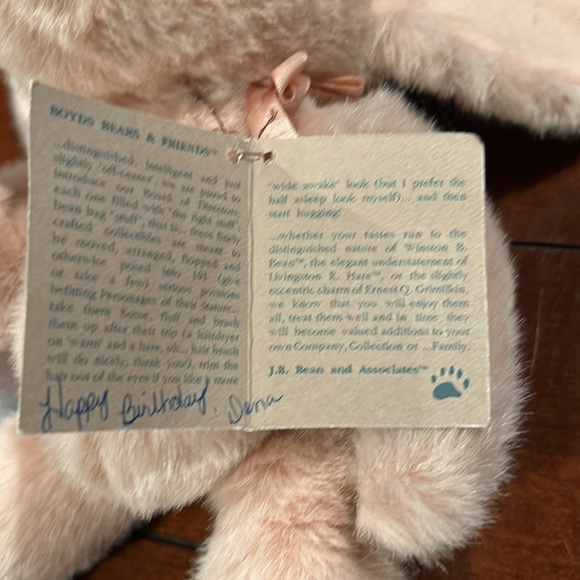 BOYDS BEARS & FRIENDS™
...distinguished, intelligent and just
slightly "off-center", we are proud to
introduce our Board of Directors,
each one filled with "the right stuff",
bean bag "stuff", that is... these finely
crafted collectibles are meant to
be moved, arranged, flopped and
otherwise posed into 101 (give
or take a few) serious positions
befitting Personages of their Stature...
take them home, fluff and brush
them up after their trip (a hairdryer
on "warm" and a hare, uh... hair brush
will do nicely, thank you), trim the
hair out of the eyes if you like a more
Happy Birthday, Dana
"wide awake" look (but I prefer the
half asleep look myself)... and then
start hugging!
...whether your tastes run to the
distinguished nature of Winston B.
Bean™, the elegant understatement of
Livingston R. Hare™, or the slightly
eccentric charm of Ernest Q. Grimilkin,
we know that you will enjoy them
all, treat them well and in time they
will become valued additions to your
own Company, Collection or ...Family.
J.B. Bean and Associates™